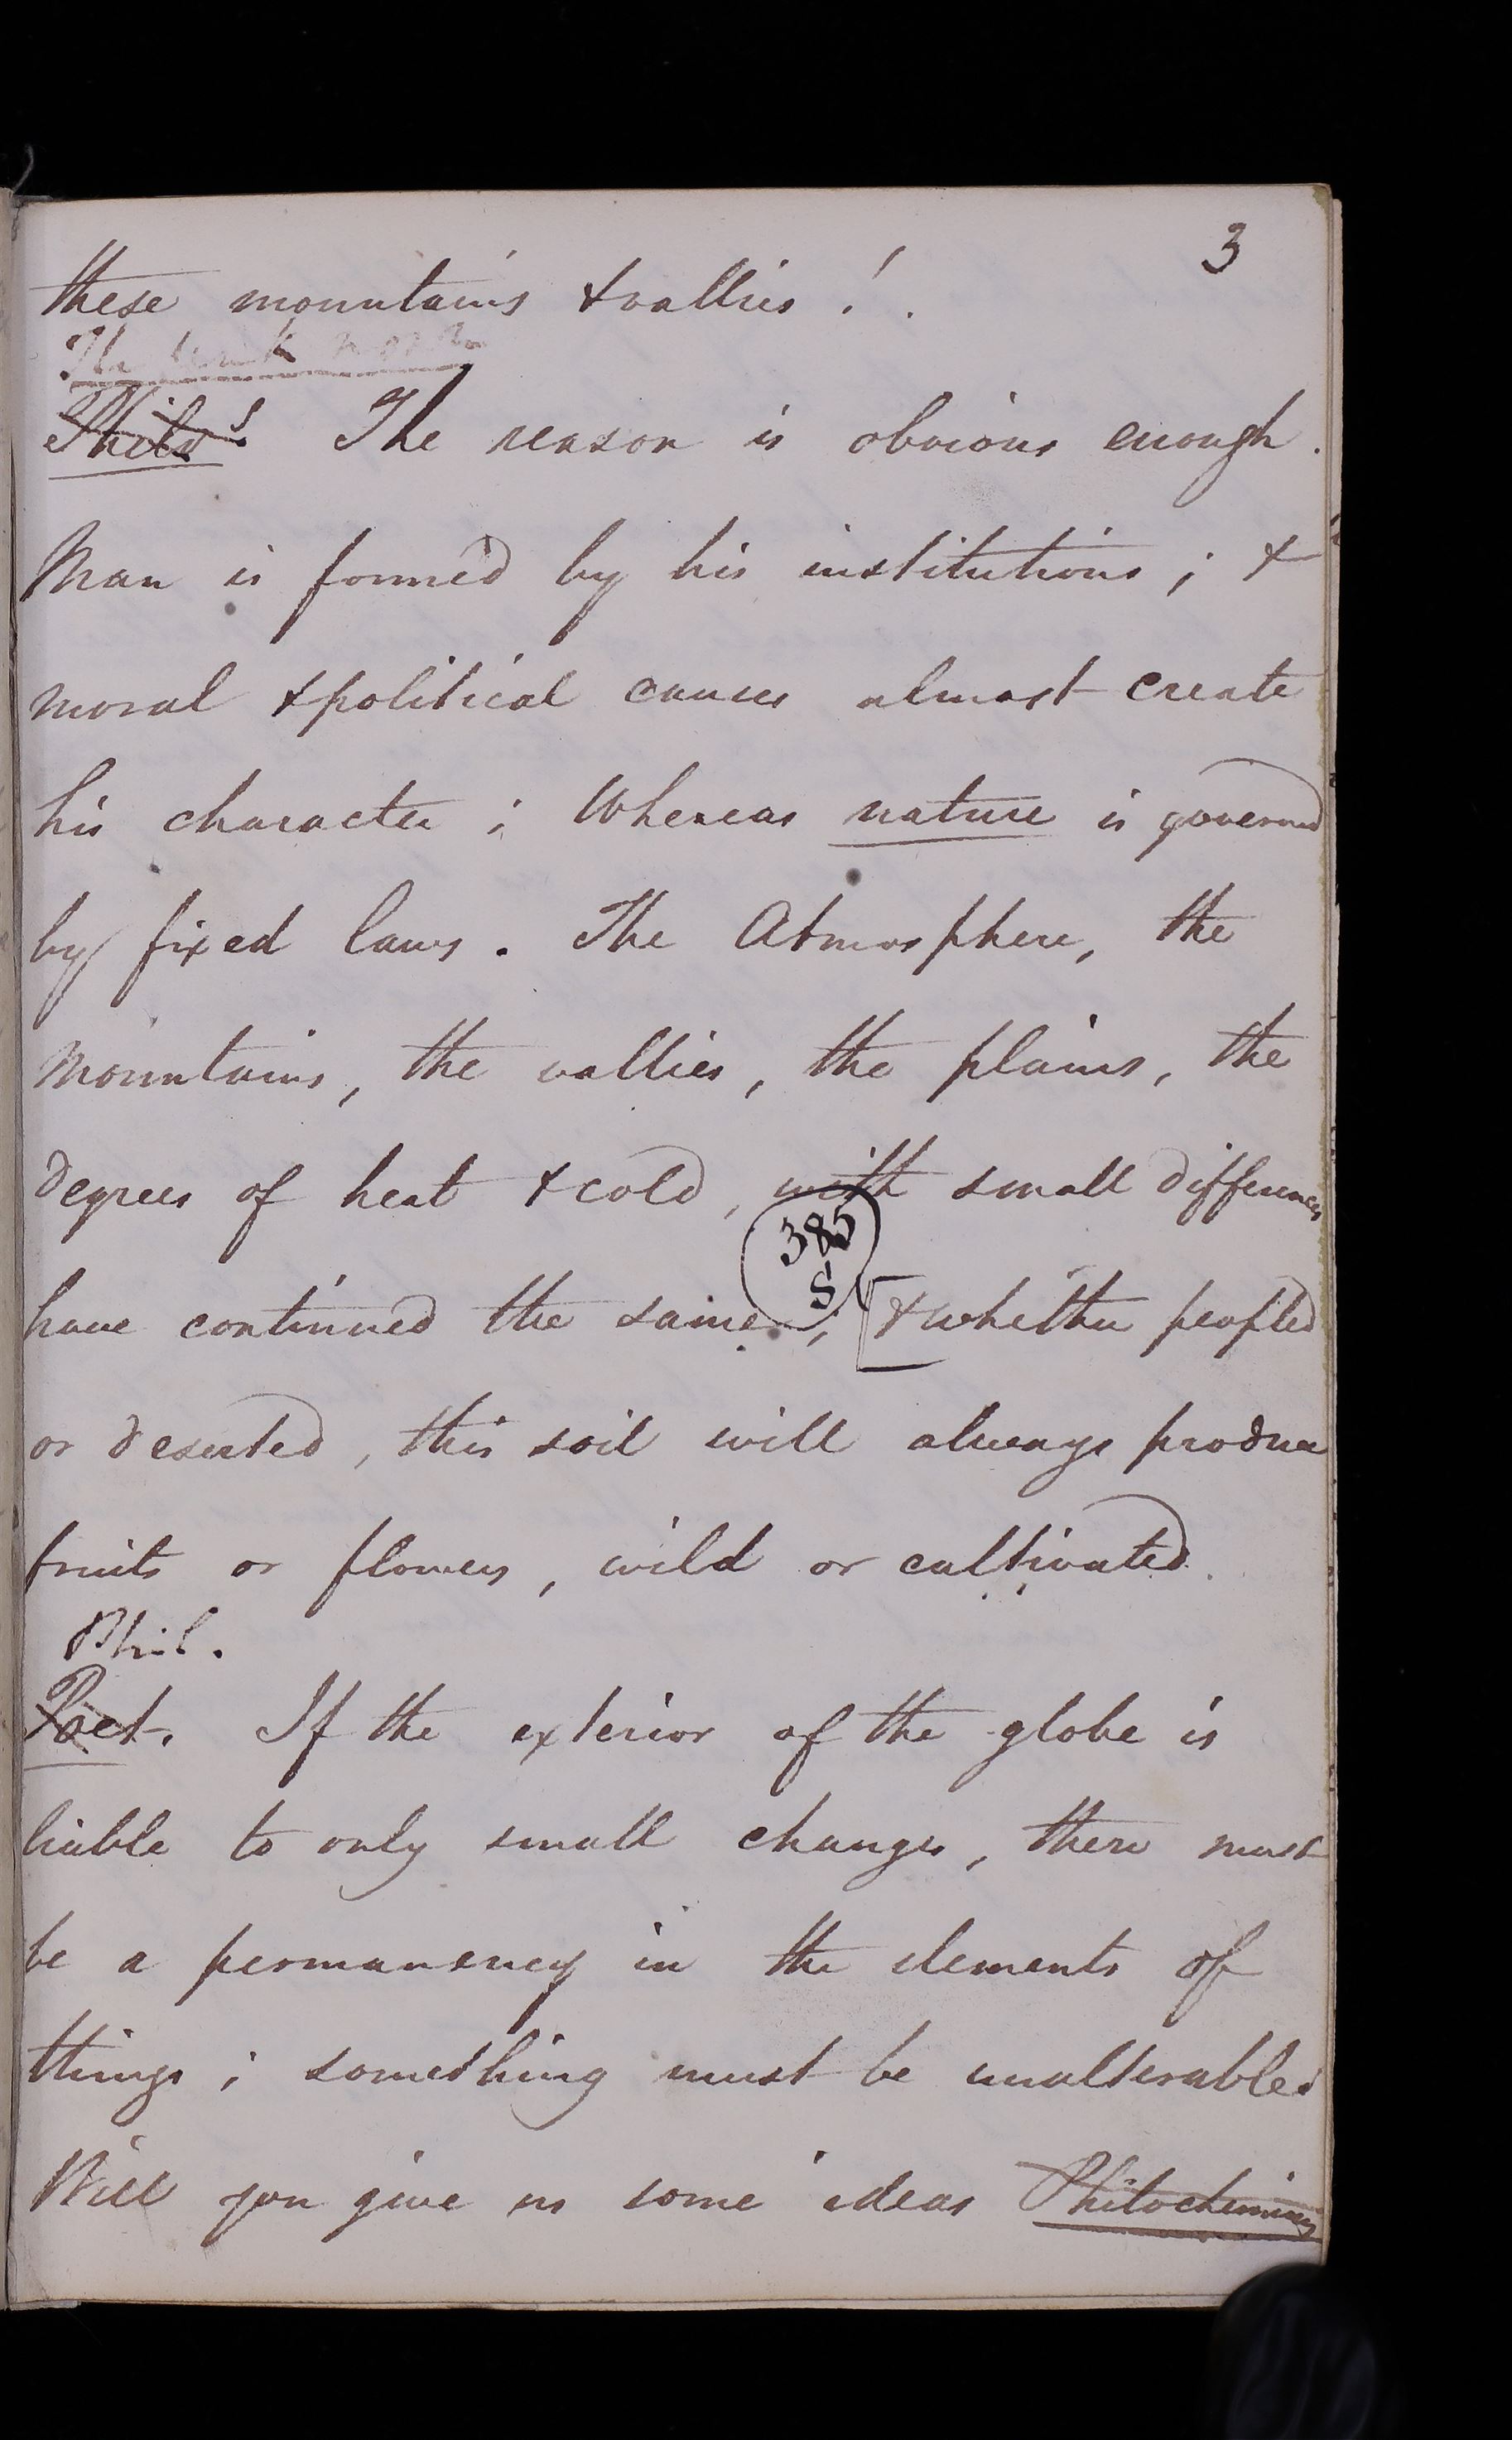 3
these mountains & vallies!.
The
Philos. The reason is obvious enough.
Man is formed by his institutions; &
moral & political causes almost create
his character; Whereas nature is governed
by fixed laws. The Atmosphere, the
Mountains, the vallies, the plains, the
degrees of heat & cold, with small differences
385
S
have continued the same; [& whether peopled
or deserted, this soil will always produce
fruits or flowers, wild or cultivated.
Phil.
Poet. If the exterior of the globe is
liable to only small changes, there must
be a permanency in the elements of
things; something must be unalterable.
Will you give us some ideas Philochemicus